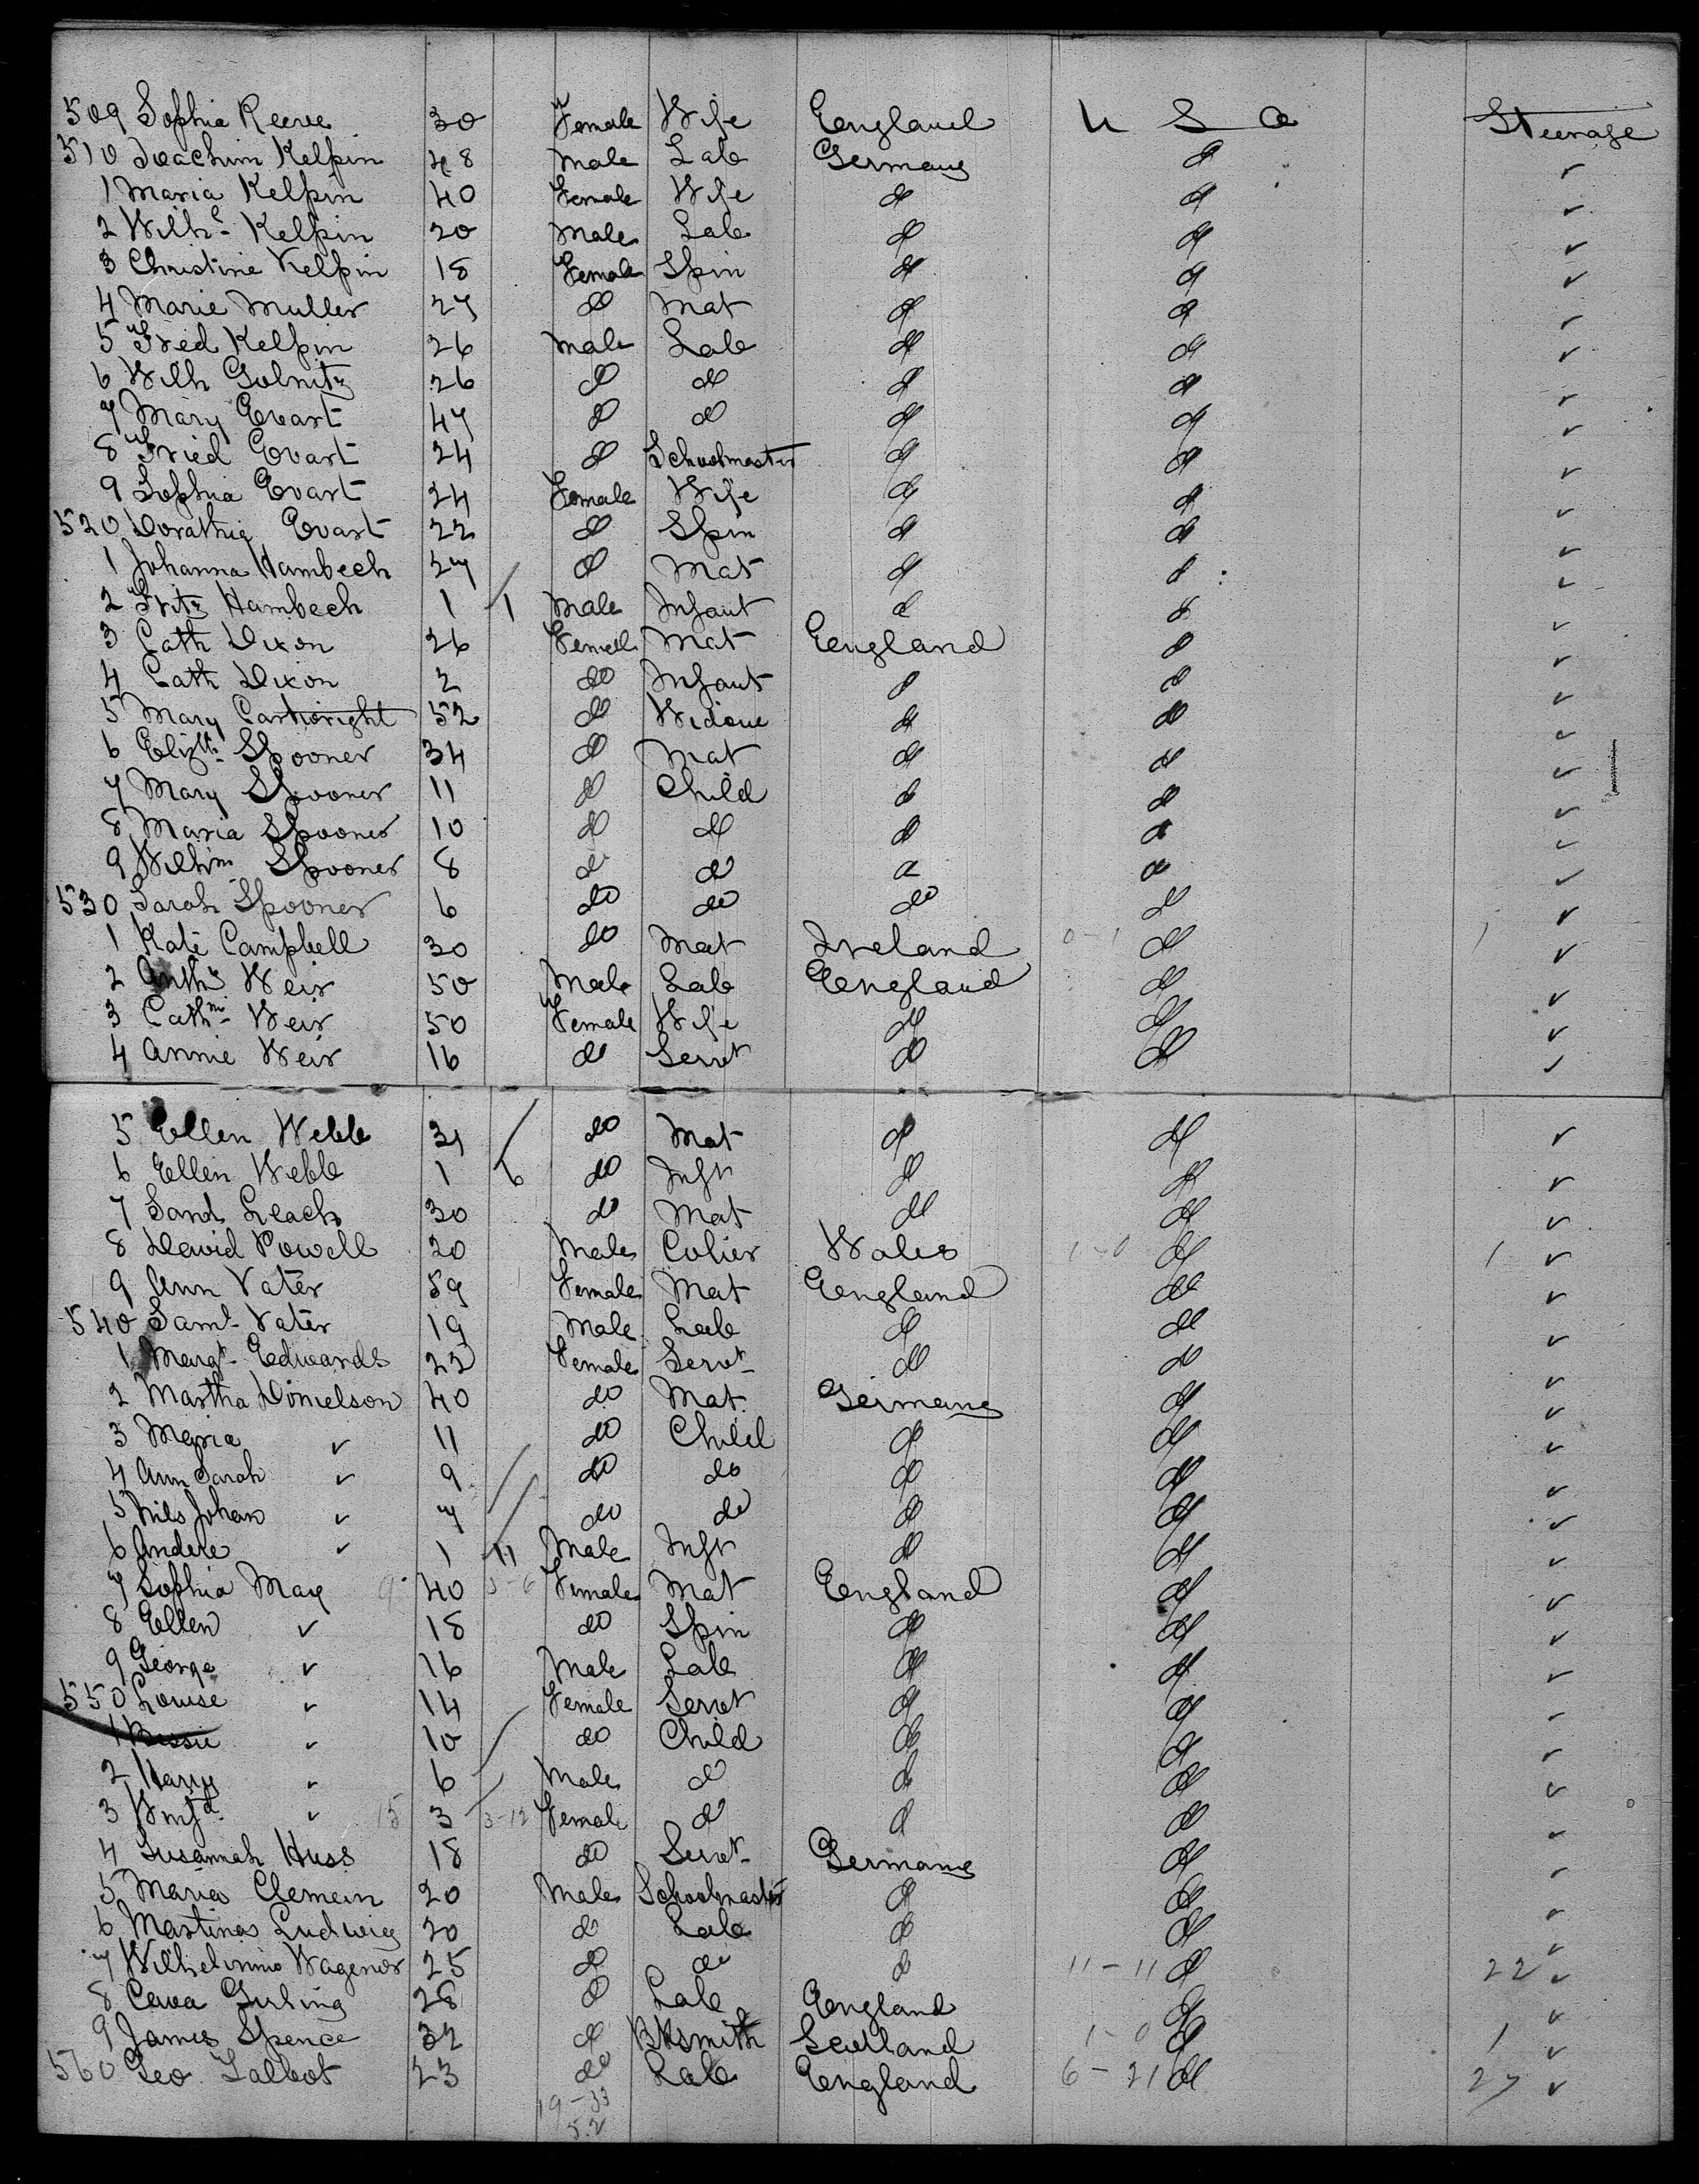 509 Sophia Reeve 30 Female Wife England U S a Steerage
510 Joachim Kelpin 48 Male Lab Germany d ✓
1 Maria Kelpin 40 Female Wife d d ✓
2 Wilhe Kelpin 20 Male Lab d d ✓
3 Christine Kelpin 18 Female Spin d d ✓
4 Marie Muller 27 do Mat d d ✓
5 Fred Kelpin 26 Male Lab d d ✓
6 Wilh Golnitz 26 d do d d ✓
7 Mary Evart 47 d d d d ✓
8 Fried Evart 24 d Schoolmaster d d ✓
9 Sophia Evart 24 Female Wife d d ✓
520 Dorathia Evart 22 d Spin d d ✓
1 Johanna Hambech 27 d Mat d d ✓
2 Fritz Hambech 1 1 Male Infant d d ✓
3 Cath Dixon 26 Female Mat England d ✓
4 Cath Dixon 2 do Infant d d ✓
5 Mary Cartwright 52 do Widow d do ✓
6 Elizth Spooner 34 do Mat d d ✓
7 Mary Spooner 11 do Child d d ✓
8 Maria Spooner 10 do do d d ✓
9 Willm Spooner 8 d d d d ✓
530 Sarah Spooner 6 do do do d ✓
1 Kate Campbell 30 do Mat Ireland 0-1 d 1 ✓
2 Anthy Weir 50 Male Lab England d ✓
3 Cathn Weir 50 Female Wife d d ✓
4 Annie Weir 16 do Servt do d ✓
5 Ellen Webb 31 do Mat d d ✓
6 Ellen Webb 1 6 do Inft d d ✓
7 Leach 30 do Mat d d ✓
8 David Powell 20 Male Colier Wales 1-0 d 1 ✓
9 Ann Vater 59 Female Mat England do ✓
540 Saml Vater 19 Male Lab d do ✓
1 Margt Edwards 22 Female Servt d do ✓
2 Martha Donielson 40 do Mat Germany d ✓
3 Maria ✓ 11 do Child d d ✓
4 Ann Sarah ✓ 9 do do d d ✓
5 Nils Johan ✓ 7 do do d d ✓
6 Andere ✓ 1 11 Male Inft d d ✓
7 Sophia May 9 40 3-6 Female Mat England d ✓
8 Ellen ✓ 18 do Spin d d ✓
9 George ✓ 16 Male Lab d d ✓
550 Louise ✓ 14 Female Servt d d ✓
1 Bessie ✓ 10 do Child d d ✓
2 Harry ✓ 6 Male d d d ✓
3 ✓ 15 3 3-12 Female d d d ✓
4 Susannah Huss 18 do Servt Germany d ✓
5 Maria Clemein 20 Male Schoolmaster d d ✓
6 Martinas Ludwig 20 d Lab d d ✓
7 Wilhelmine Wagener 25 d do d 11-11 d 22 ✓
8 28 d Lab England d ✓
9 James Spence 32 d Bksmith Scotland 1-0 d 1 ✓
560 Geo. Talbot 23 do Lab England 6-21 d 27 ✓
19-33
52